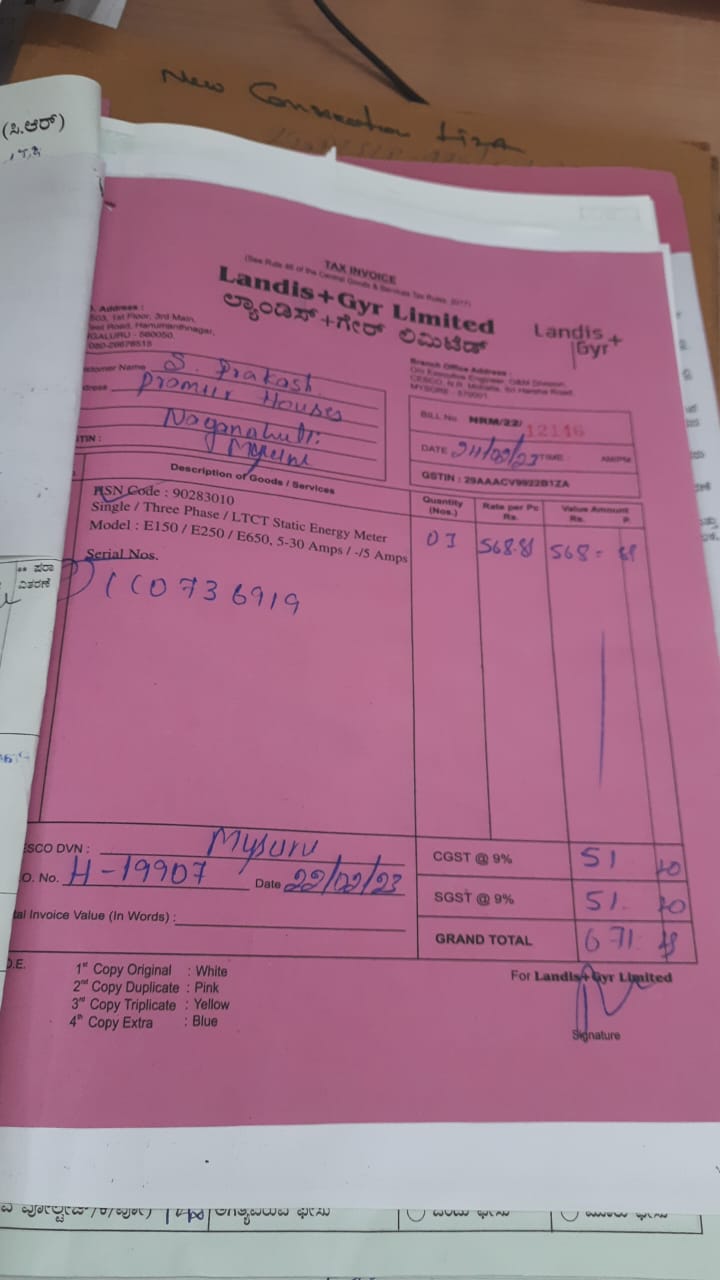 New Connection
(ಸಿ.ಆರ್)
TAX INVOICE
(See Rule 46 of the Central Goods & Services Tax Rules, 2017)
Landis+Gyr Limited
ಲ್ಯಾಂಡಿಸ್+ಗೇರ್ ಲಿಮಿಟೆಡ್
Landis+
Gyr
Address :
1st Floor, 3rd Main,
Road, Hanumanthnagar,
GALURU - 560050.
Branch Office Address :
O/o Executive Engineer, O&M Division,
MYSORE - 570001
Customer Name S. Prakash
Houses
Mysuru
TIN :
BILL No. NRM/22/ 12146
DATE TIME : AM/PM
GSTIN : 29AAACV9922B1ZA
Description of Goods / Services
Quantity (Nos.)
Rate per Pc Rs.
Value Amount Rs. P.
HSN Code : 90283010
Single / Three Phase / LTCT Static Energy Meter
Model : E150 / E250 / E650, 5-30 Amps / -/5 Amps
01 568.81 568 = 81
Serial Nos.
736919
** ಪರಾ
ವಿತರಣೆ
ESCO DVN : Mysuru
O. No. H-19907 Date 22/02/23
tal Invoice Value (In Words) :
CGST @ 9% 51
SGST @ 9% 51.
GRAND TOTAL 671
O.E.
1st Copy Original : White
2nd Copy Duplicate : Pink
3rd Copy Triplicate : Yellow
4th Copy Extra : Blue
For Landis+Gyr Limited
Signature